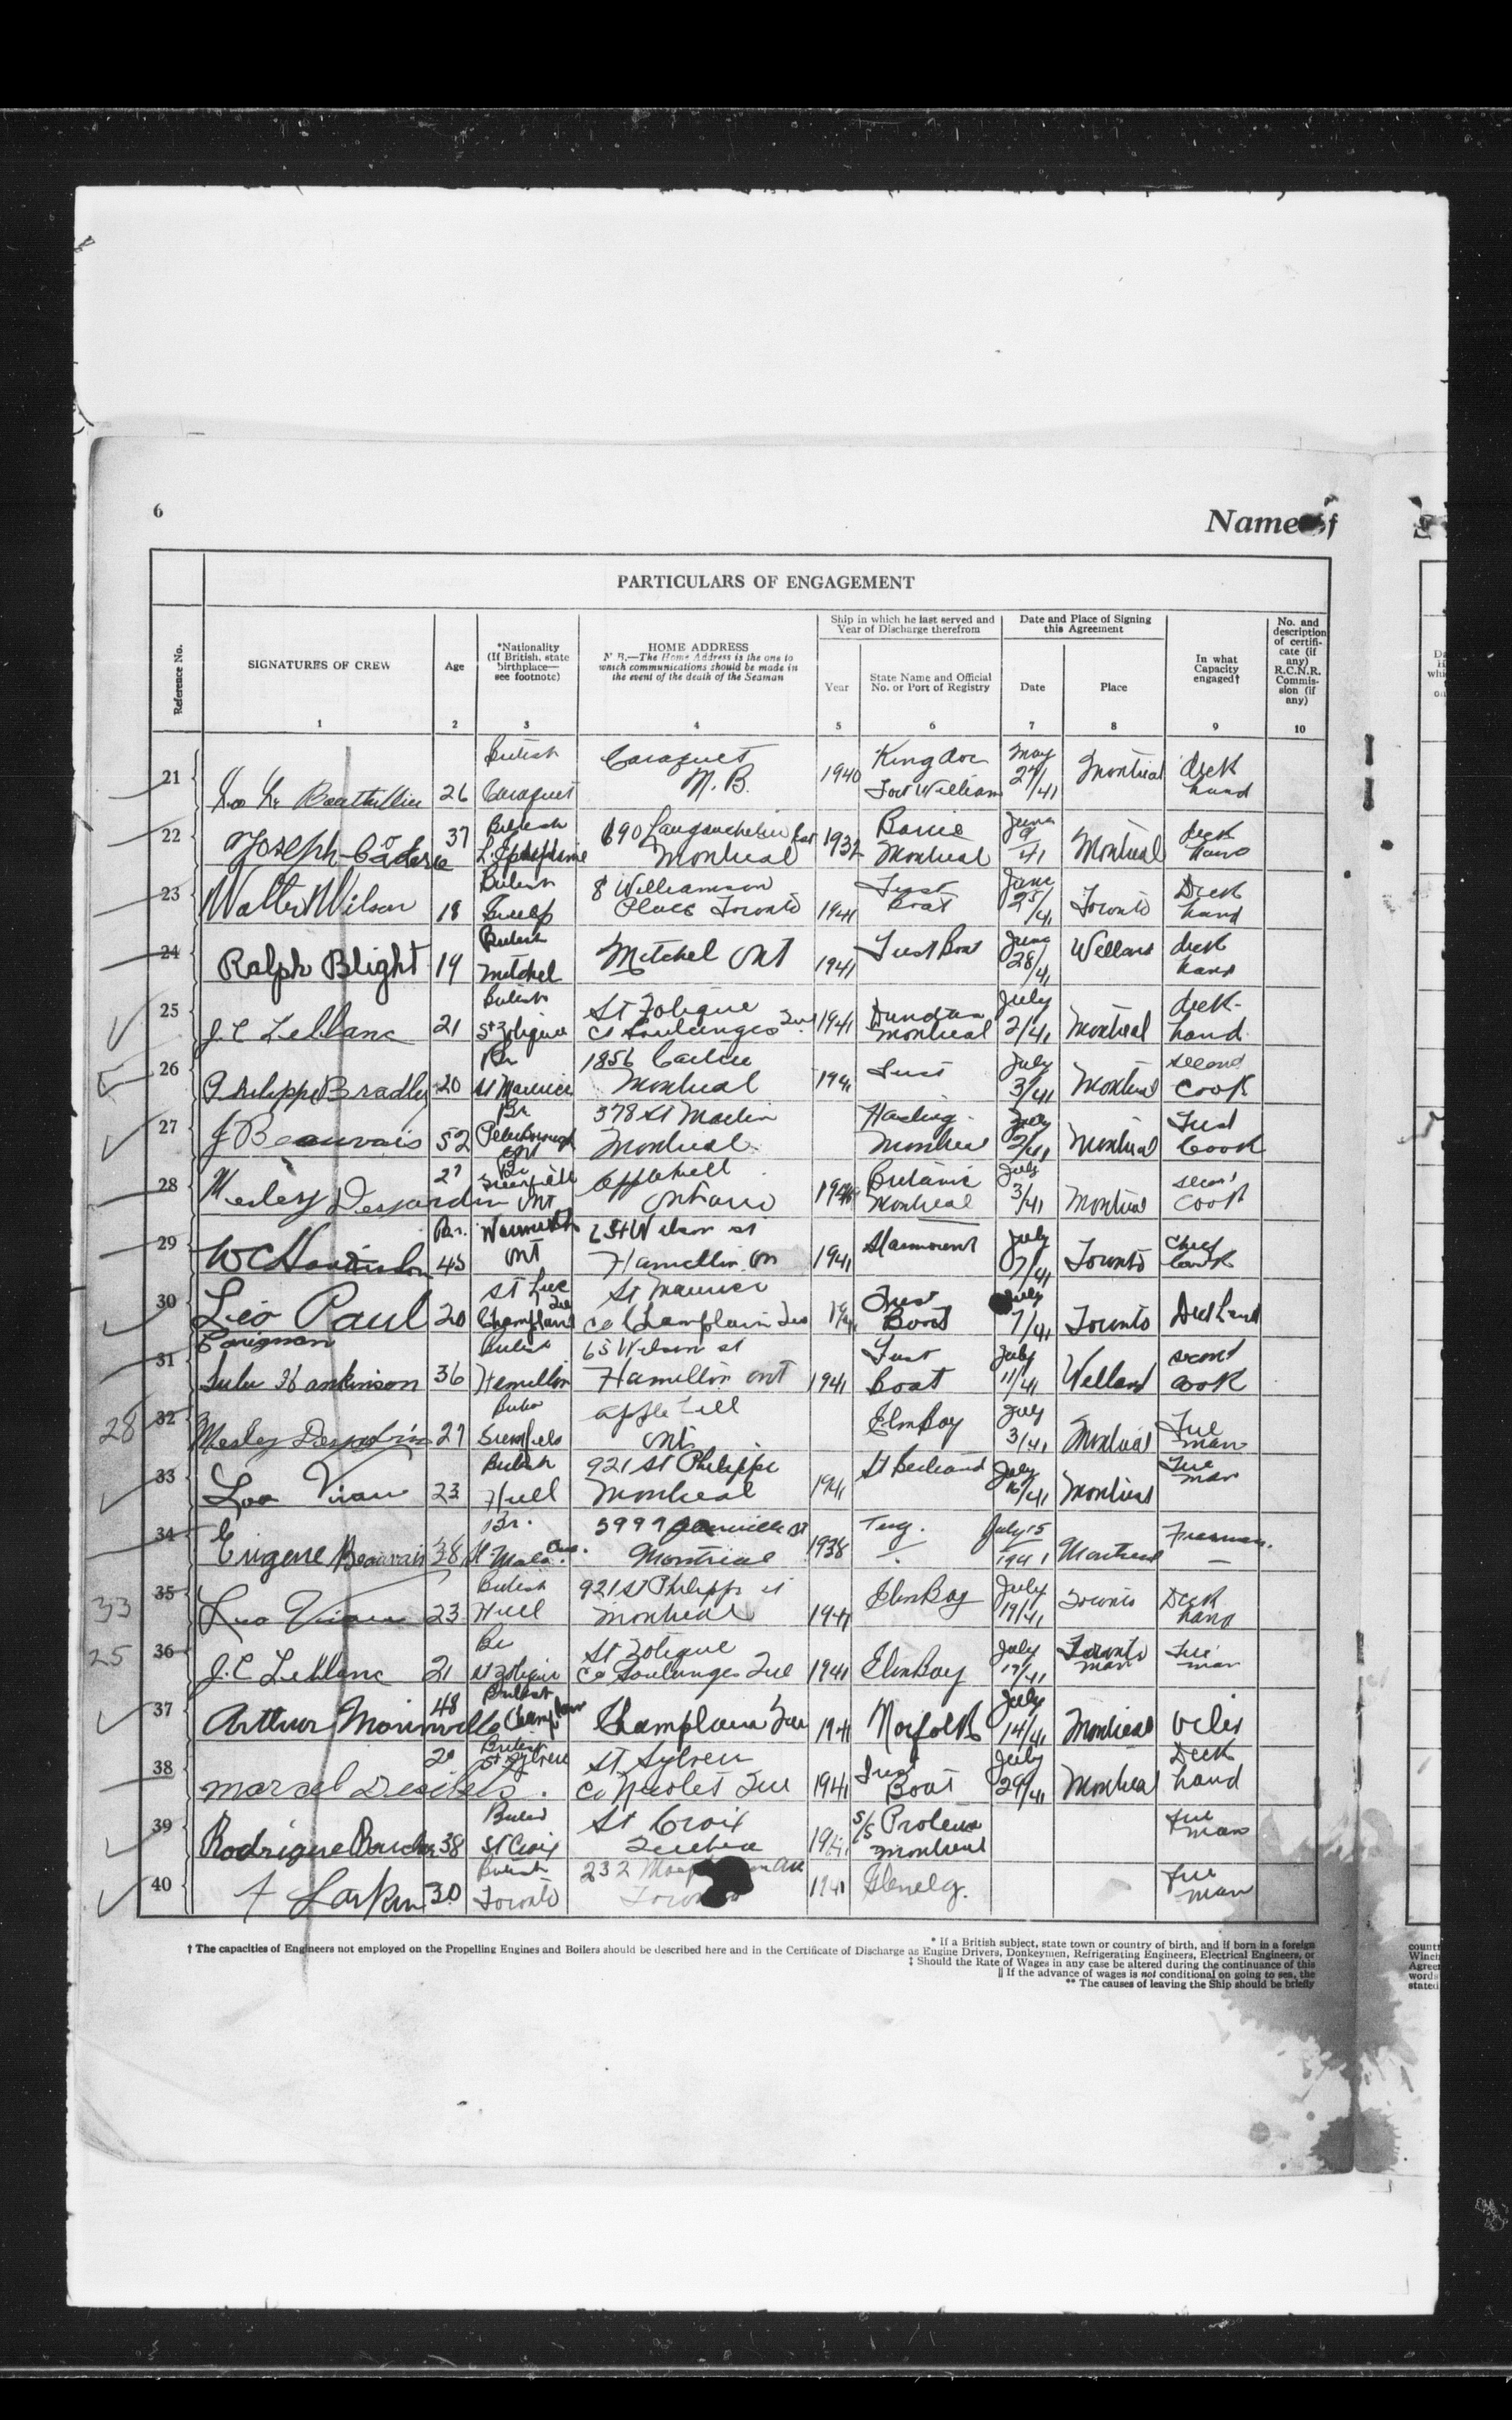 6
Name of
PARTICULARS OF ENGAGEMENT
Reference No.
SIGNATURES OF CREW
Age
*Nationality (If British, state birthplace— see footnote)
HOME ADDRESS
N.B.—The Home Address is the one to which communications should be made in the event of the death of the Seaman
Ship in which he last served and Year of Discharge therefrom
Year
State Name and Official No. or Port of Registry
Date and Place of Signing this Agreement
Date
Place
In what Capacity engaged†
No. and description of certificate (if any) R.C.N.R. Commission (if any)
1 2 3 4 5 6 7 8 9 10
21 26 British Caraquet Caraquet N.B. 1940 Kingdoc Fort William May 24/41 Montreal deck hand
22 Joseph 37 British 690 Montreal 1932 Barrie Montreal June 9/41 Montreal deck hand
23 Walter Wilson 18 British Guelp 8 Williamson Place Toronto 1941 First Boat June 25/41 Toronto Deck hand
24 Ralph Blight 19 British Mitchel Mitchel Ont 1941 First Boat June 28/41 Welland deck hand
25 J.C Leblanc 21 British St Zotique St Zotique Co Soulanges Que 1941 Dundas Montreal July 2/41 Montreal deck hand
26 Philippe Bradley 20 Br St Maurice 1856 Cartier Montreal 1941 First July 3/41 Montreal second cook
27 J Beauvais 52 Br Peterborough Ont 378 St Martin Montreal Montreal July 2/41 Montreal First Cook
28 Wesley Desjardin 27 Br Greenfield Ont Applehill Ontario Britanic Montreal July 3/41 Montreal second cook
29 W C Hankinson 45 Br. Ont Wilson st Hamilton On 1941 July 7/41 Toronto Chief Cook
30 Leo Paul Carignan 20 St Luc Champlain Que St Maurice co Champlain Que 1941 First Boat July 7/41 Toronto Deckhand
31 Lulu Hankinson 36 British Hamilton 65 Wilson st Hamilton ont 1941 First boat July 11/41 Welland second cook
28 32 Wesley Desjardin 27 British Greenfield apple Hill Ont ElmBay July 3/41 Montreal Fireman
33 Leo Viau 23 British Hull 921 St Philippe Montreal 1941 St Bertrand July 16/41 Montreal Fireman
34 Eugene Beauvais 38 Br. St Malo Que. Montreal 1938 Tug. July 15 1941 Montreal Fireman.
33 35 Leo Viau 23 British Hull 921 St Philippe st Montreal 1941 ElmBay July 19/41 Toronto Deck hand
25 36 J.C Leblanc 21 Br St Zotique St Zotique Co Soulanges Que 1941 ElmBay July 17/41 Toronto Fireman
37 Arthur Morinville 48 British Champlain Champlain Que 1941 Norfolk July 14/41 Montreal Oiler
38 Marcel 20 British St Sylvere St Sylvere Co Nicolet Que 1941 First Boat July 29/41 Montreal Deck hand
39 Rodrigue 38 British St Croix St Croix Quebec 1941 S/S Proteus Montreal Fireman
40 Larkin 30 British Toronto 232 Toronto 1941 Glenelg. Fireman
* If a British subject, state town or country of birth, and if born in a foreign
† The capacities of Engineers not employed on the Propelling Engines and Boilers should be described here and in the Certificate of Discharge as Engine Drivers, Donkeymen, Refrigerating Engineers, Electrical Engineers, or
‡ Should the Rate of Wages in any case be altered during the continuance of this
|| If the advance of wages is not conditional on going to sea, the
** The causes of leaving the Ship should be briefly